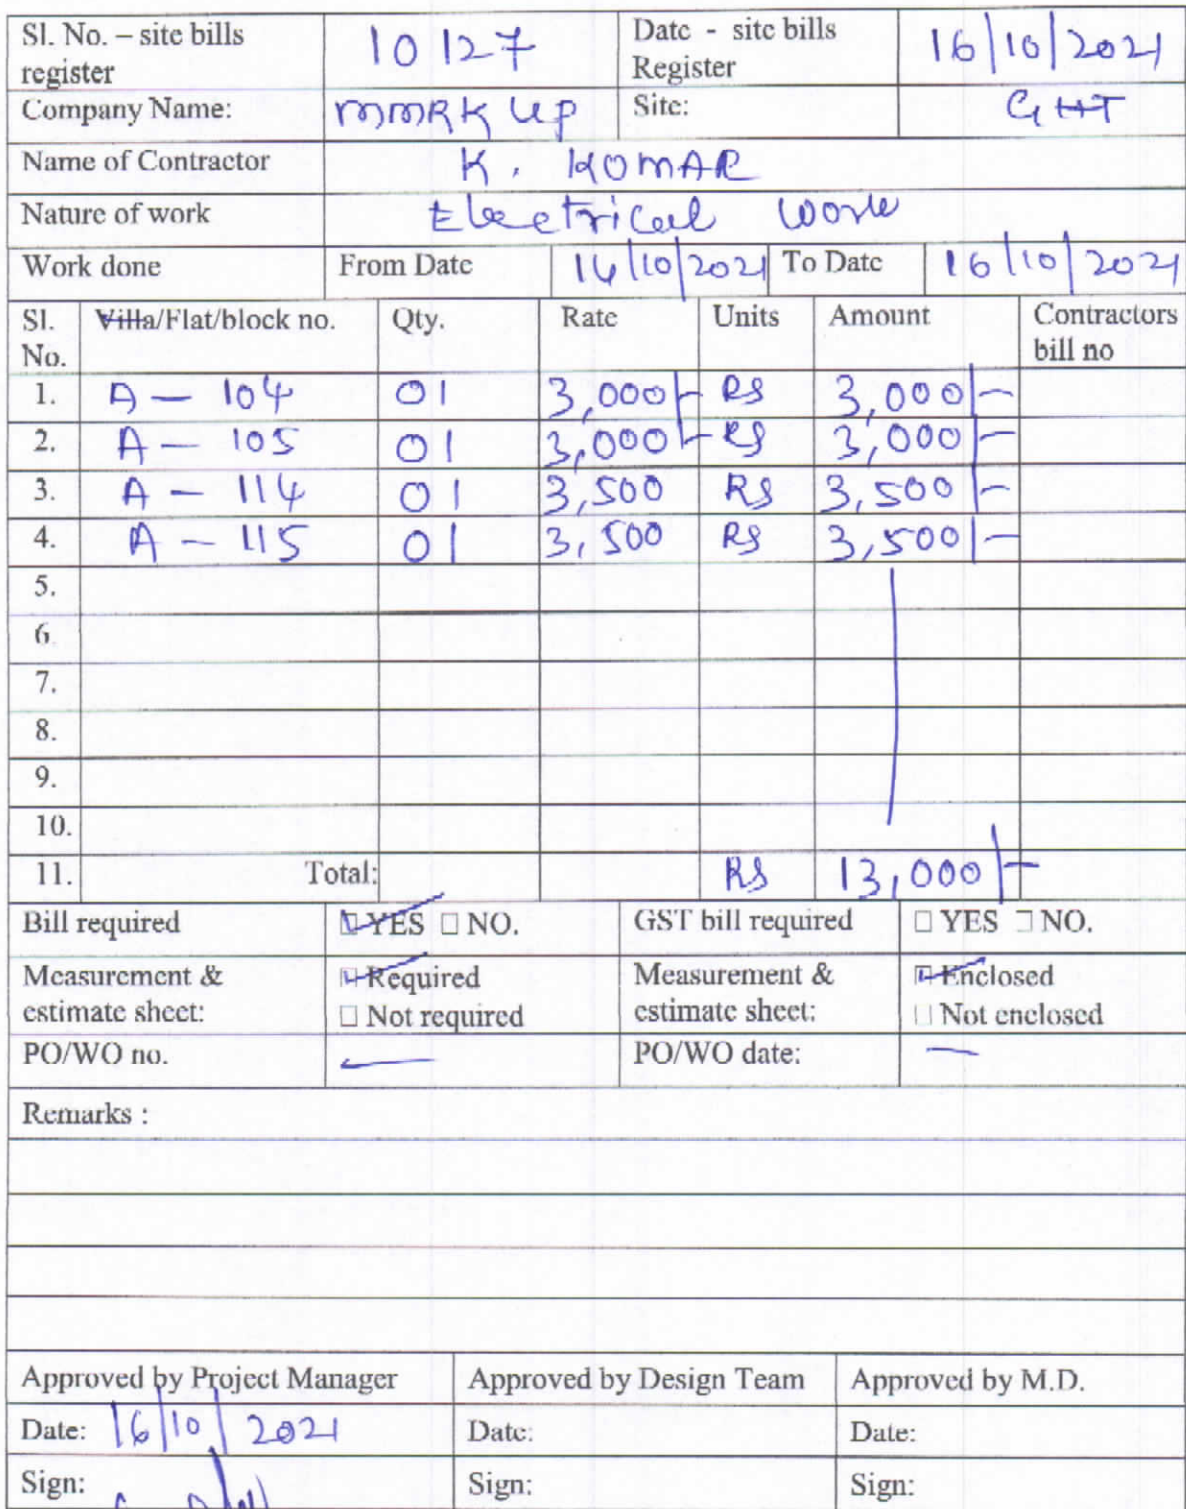 Sl. No. – site bills register 10127 Date - site bills Register 16/10/2021
Company Name: MMRK UP Site: GHT
Name of Contractor K. KOMAR
Nature of work Electrical work
Work done From Date 14/10/2021 To Date 16/10/2021
Sl. No. Villa/Flat/block no. Qty. Rate Units Amount Contractors bill no
1. A – 104 01 3,000/- RS 3,000/-
2. A – 105 01 3,000/- RS 3,000/-
3. A – 114 01 3,500 RS 3,500/-
4. A – 115 01 3,500 RS 3,500/-
5.
6.
7.
8.
9.
10.
11. Total: RS 13,000/-
Bill required ☑ YES ☐ NO. GST bill required ☐ YES ☐ NO.
Measurement & estimate sheet: ☑ Required ☐ Not required Measurement & estimate sheet: ☑ Enclosed ☐ Not enclosed
PO/WO no. — PO/WO date: —
Remarks :
Approved by Project Manager Approved by Design Team Approved by M.D.
Date: 16/10/2021 Date: Date:
Sign: Sign: Sign: